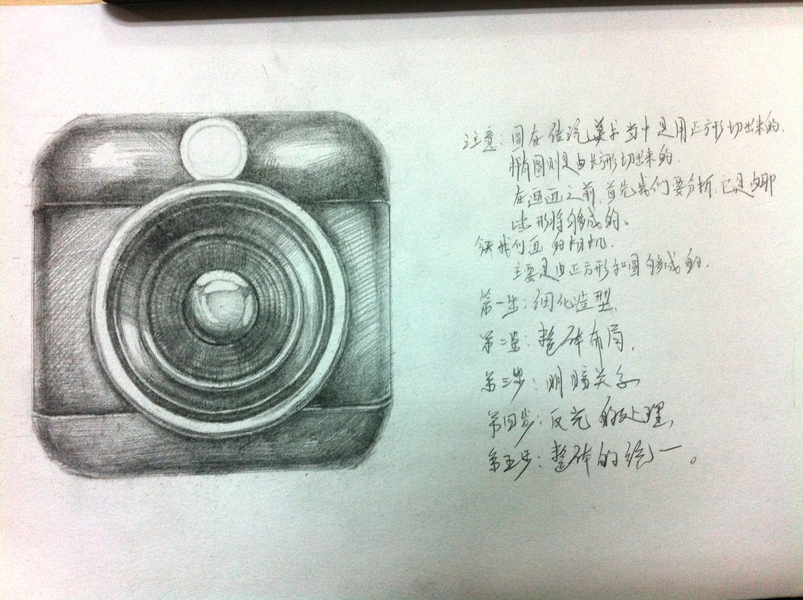 注意：圆在传统美术当中是用正方形切出来的.
椭圆则是由长方形切出来的.
在画画之前.首先我们要分析.它是由那
些形将够成的。
我们画的相机.
主要是由正方形和圆够成的.
第一步：细化造型.
第二步：整体布局.
第三步：明暗关系
第四步：反光的处理.
第五步：整体的统一。